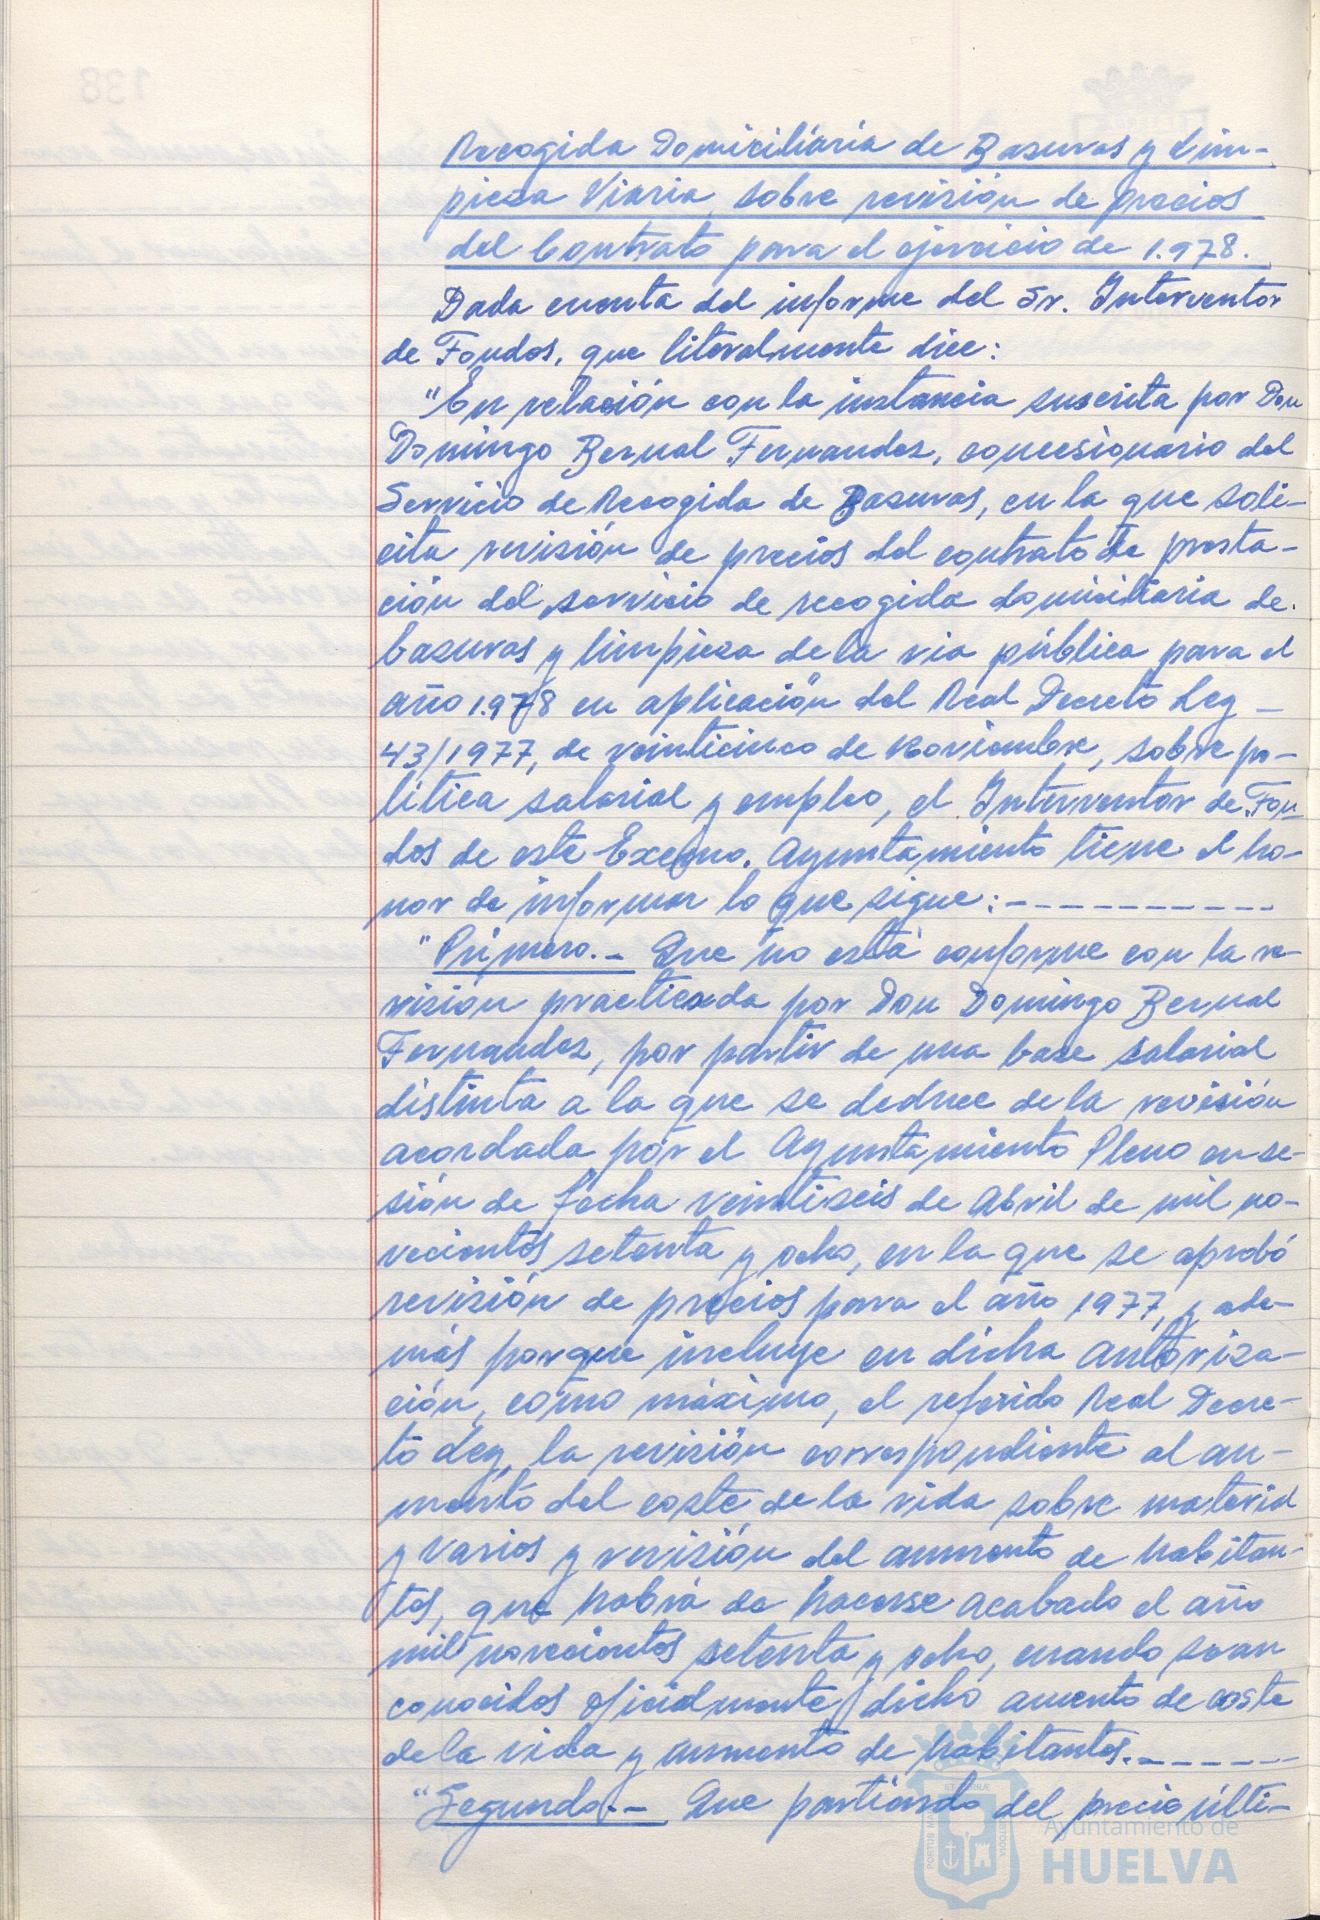 Recogida Domiciliaria de Basuras y Lim-
pieza Viaria, sobre revisión de precios
del Contrato para el ejercicio de 1.978.
Dada cuenta del informe del Sr. Interventor
de Fondos, que literalmente dice:
"En relación con la instancia suscrita por Don
Domingo Bernal Fernandez, concesionario del
Servicio de Recogida de Basuras, en la que soli-
cita revisión de precios del contrato de presta-
ción del servicio de recogida domiciliaria de
basuras y limpieza de la via pública para el
año 1.978 en aplicación del Real Decreto Ley -
43/1977, de veinticinco de Noviembre, sobre po-
lítica salarial y empleo, el Interventor de Fon-
dos de este Excmo. Ayuntamiento tiene el ho-
nor de informar lo que sigue:-----------
"Primero.- Que no está conforme con la re-
visión practicada por Don Domingo Bernal
Fernandez, por partir de una base salarial
distinta a la que se deduce de la revisión
acordada por el Ayuntamiento Pleno en se-
sión de fecha veintiseis de Abril de mil no-
vecientos setenta y ocho, en la que se aprobó
revisión de precios para el año 1977, y ade-
más porque incluye en dicha autoriza-
ción, como máximo, el referido Real Decre-
to Ley, la revisión correspondiente al au-
mento del coste de la vida sobre material
y varios y revisión del aumento de habitan-
tes, que habrá de hacerse acabado el año
mil novecientos setenta y ocho, cuando sean
conocidos oficialmente dicho amento de coste
de la vida y aumento de habitantes.------
"Segundo.- Que partiendo del precio últi-
Ayuntamiento de
HUELVA
138